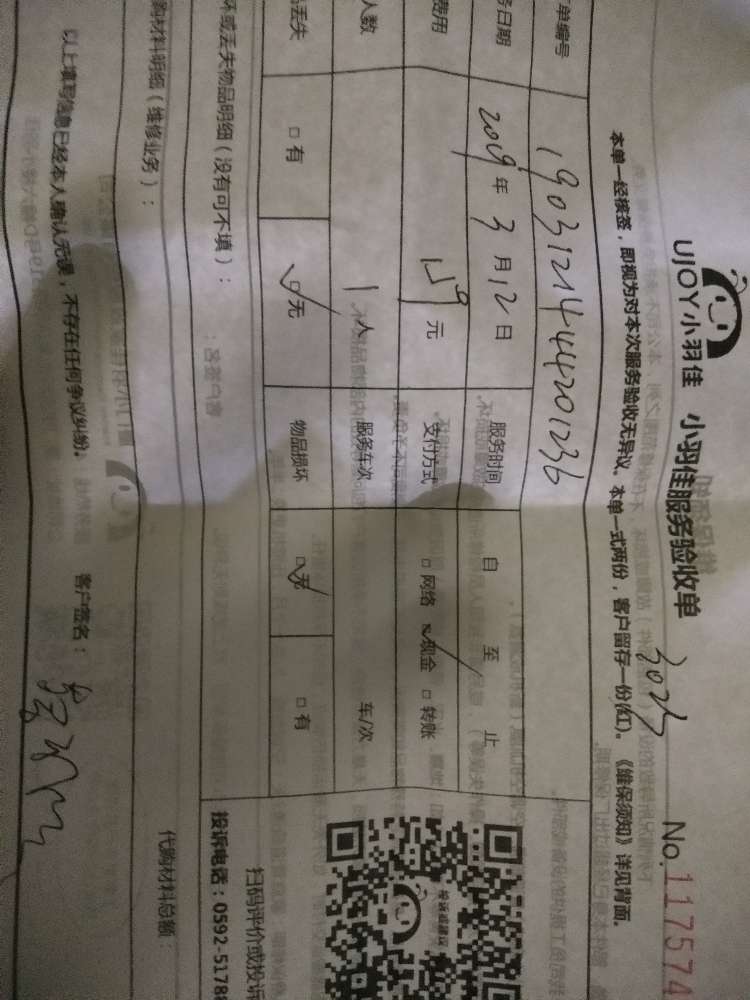 UJOY小羽佳 小羽佳服务验收单 No.117574
本单一经核签，即视为对本次服务验收无异议、本单一式两份，客户留存一份(红)。《维保须知》详见背面。
单编号 19031214444201236
务日期 2019年3月12日 服务时间 自 至 止
费用 元 支付方式 □网络 □现金 □转账
人数 1人 服务车次 车/次
品丢失 □有 □无 物品损坏 □无 □有
坏或丢失物品明细（没有可不填）：
扫码评价或投诉
投诉电话：0592-5178
购材料明细（维修业务）： 代购材料总额：
以上填写信息已经本人确认无误，不存在任何争议纠纷。 客户签名：